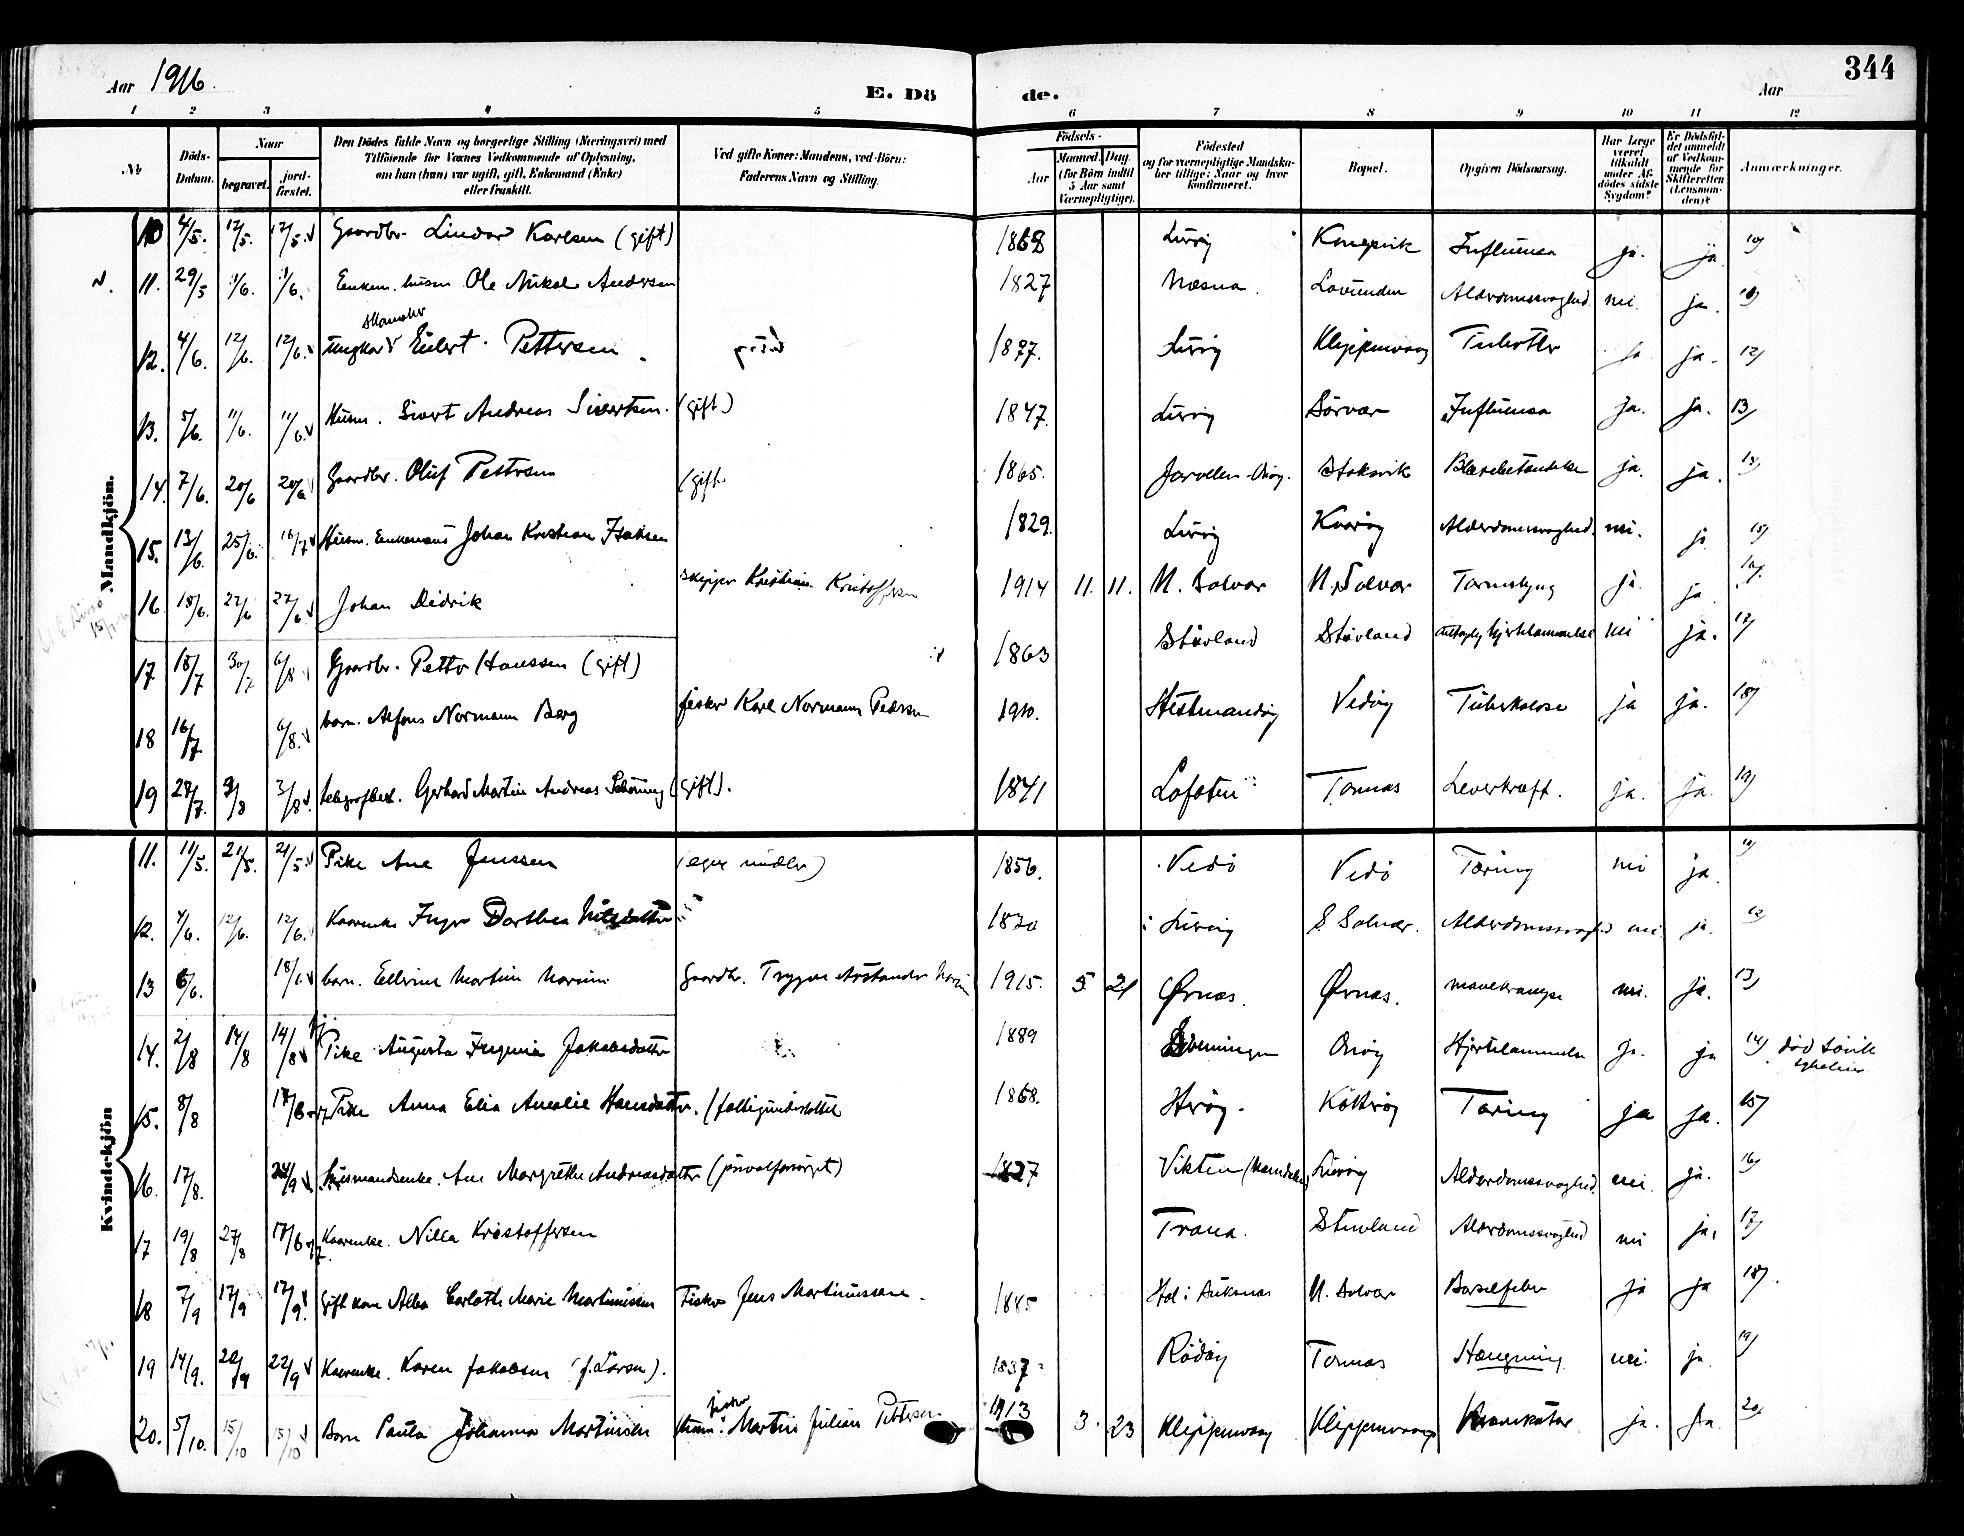 Aar 1916.
E. Dö de.
Aar
344
1 2 3 4 5 6 7 8 9 10 11 12
Nr
Döds-Datum.
Naar
begravet.
jord-fæstet.
Den Dödes fulde Navn og borgerlige Stilling (Næringsvei) med Tilföiende for Voxnes Vedkommende af Oplysning, om han (hun) var ugift, gift, Enkemand (Enke) eller fraskilt.
Ved gifte Koner: Mandens, ved Börn: Faderens Navn og Stilling.
Födsels-
Aar
Maaned. Dag. (for Börn indtil 5 Aar samt Værnepligtige).
Födested og for værnepligtige Mandskaber tillige: Naar og hvor konfirmeret.
Bopæl.
Opgiven Dödsaarsag.
Har Læge været tilkaldt under Afdödes sidste Sygdom?
Er Dödsfaldet anmeldt af Vedkommende for Skifteretten (Lensmanden)?
Anmærkninger.
Mandkjön.
10 4/5. 12/5. 12/5. Gaardbr. Lindor Karlsen (gift) 1868 Lurøy Influensa ja. ja. 10)
11. 29/5 11/6. 11/6. Enkem. husm Ole Nikolai Andersen 1827 Næsna. Lovunden Alderdomssvaghed nei ja.
12. 4/6. 12/6. 12/6. Ungkar Eilert Pettersen 1877. Lurøy Klippenvaag ja ja. 12)
13. 5/6. 11/6. 11/6. Husm. Sivert Andreas Sivertsen. (gift) 1847 Lurøy Sörvær Influensa ja. ja. 13)
14. 7/6. 20/6 20/6 Gaardbr. Oluf Pettersen (gift 1865. Stoksvik ja. ja.
15. 13/6. 25/6. 16/7 Husm. Enkemand Johan Kristian Isaksen 1829. Lurøy Kvarøy Alderdomssvaghed nei. ja 15)
16. 18/6. 27/6 27/6 Johan Didrik skipper Kristian Kristoffersen 1914 11. 11. N. Solvær N. Solvær Tarmslyng ja. ja 16)
17. 18/7 30/7 6/8 Gaardbr. Petter Hanssen (gift) 1863 Stuvland Stuvland nei ja. 17)
18 16/7 6/8. barn. Alfons Normann Berg fisker Karl Normann Pedersen 1910. Hestmandøy Vedøy Tuberkulose ja ja. 18)
19 28/7. 3/8 3/8. Gerhard Martin Andreas Schöning (gift). 1841 Lofoten Tonnes Leverkræft. ja. ja. 19)
Kvindekjön
11. 11/5. 21/5. 21/5. Pike Ane Jenssen (egne midler) 1856. Vedö Vedö Tæring nei ja.
12. 4/6. 12/6. 12/6. Kaarenke Inger Dorthea Nilsdatter 1830 Lurøy S Solvær. Alderdomssvaghed nei ja. 12)
13 6/6. 18/6. barn. Ellerine Martine Marium Gaardbr. Trygve 1915. 5 21 Ørnes. Ørnes. mavekrampe nei. ja. 13)
14. 2/8 14/8 14/8 Pike Augusta Ingema Jakobsdatter 1889 Onøy Hjertelammelse ja. ja 14) död
15. 8/8 Pike Anna Elia Amalie Hansdatter. (fattigunderstöttet 1868. Tæring ja ja. 15)
16. 17/8. 24/9 Husmandsenke. Ane Margrethe Andreasdatter (privatforsörget) 1827 Vikten Lurøy Alderdomssvaghed. nei. ja. 16)
17 19/8 27/8 Kaarenke. Nilla Kristoffersen Træna. Stuvland Alderdomssvaghed nei ja. 17)
18 7/9 17/9 17/9. Gift kone Alba Marie Martinussen Fisker Jens Martinussen. 1885 N. Solvær Barselfeber ja ja 18).
19 14/9. 22/9 22/9 Kaarenke. Karen Jakobsen (f. Larsen). 1837 Rödöy Tonnes Hængning nei. ja. 19)
20. 5/10. 15/10 15/10 Barn Paula Johanna Martinsen fisker Martin Julian Pettersen 1913 3. 23 Klippenvaag Klippenvaag ja. ja. 20)